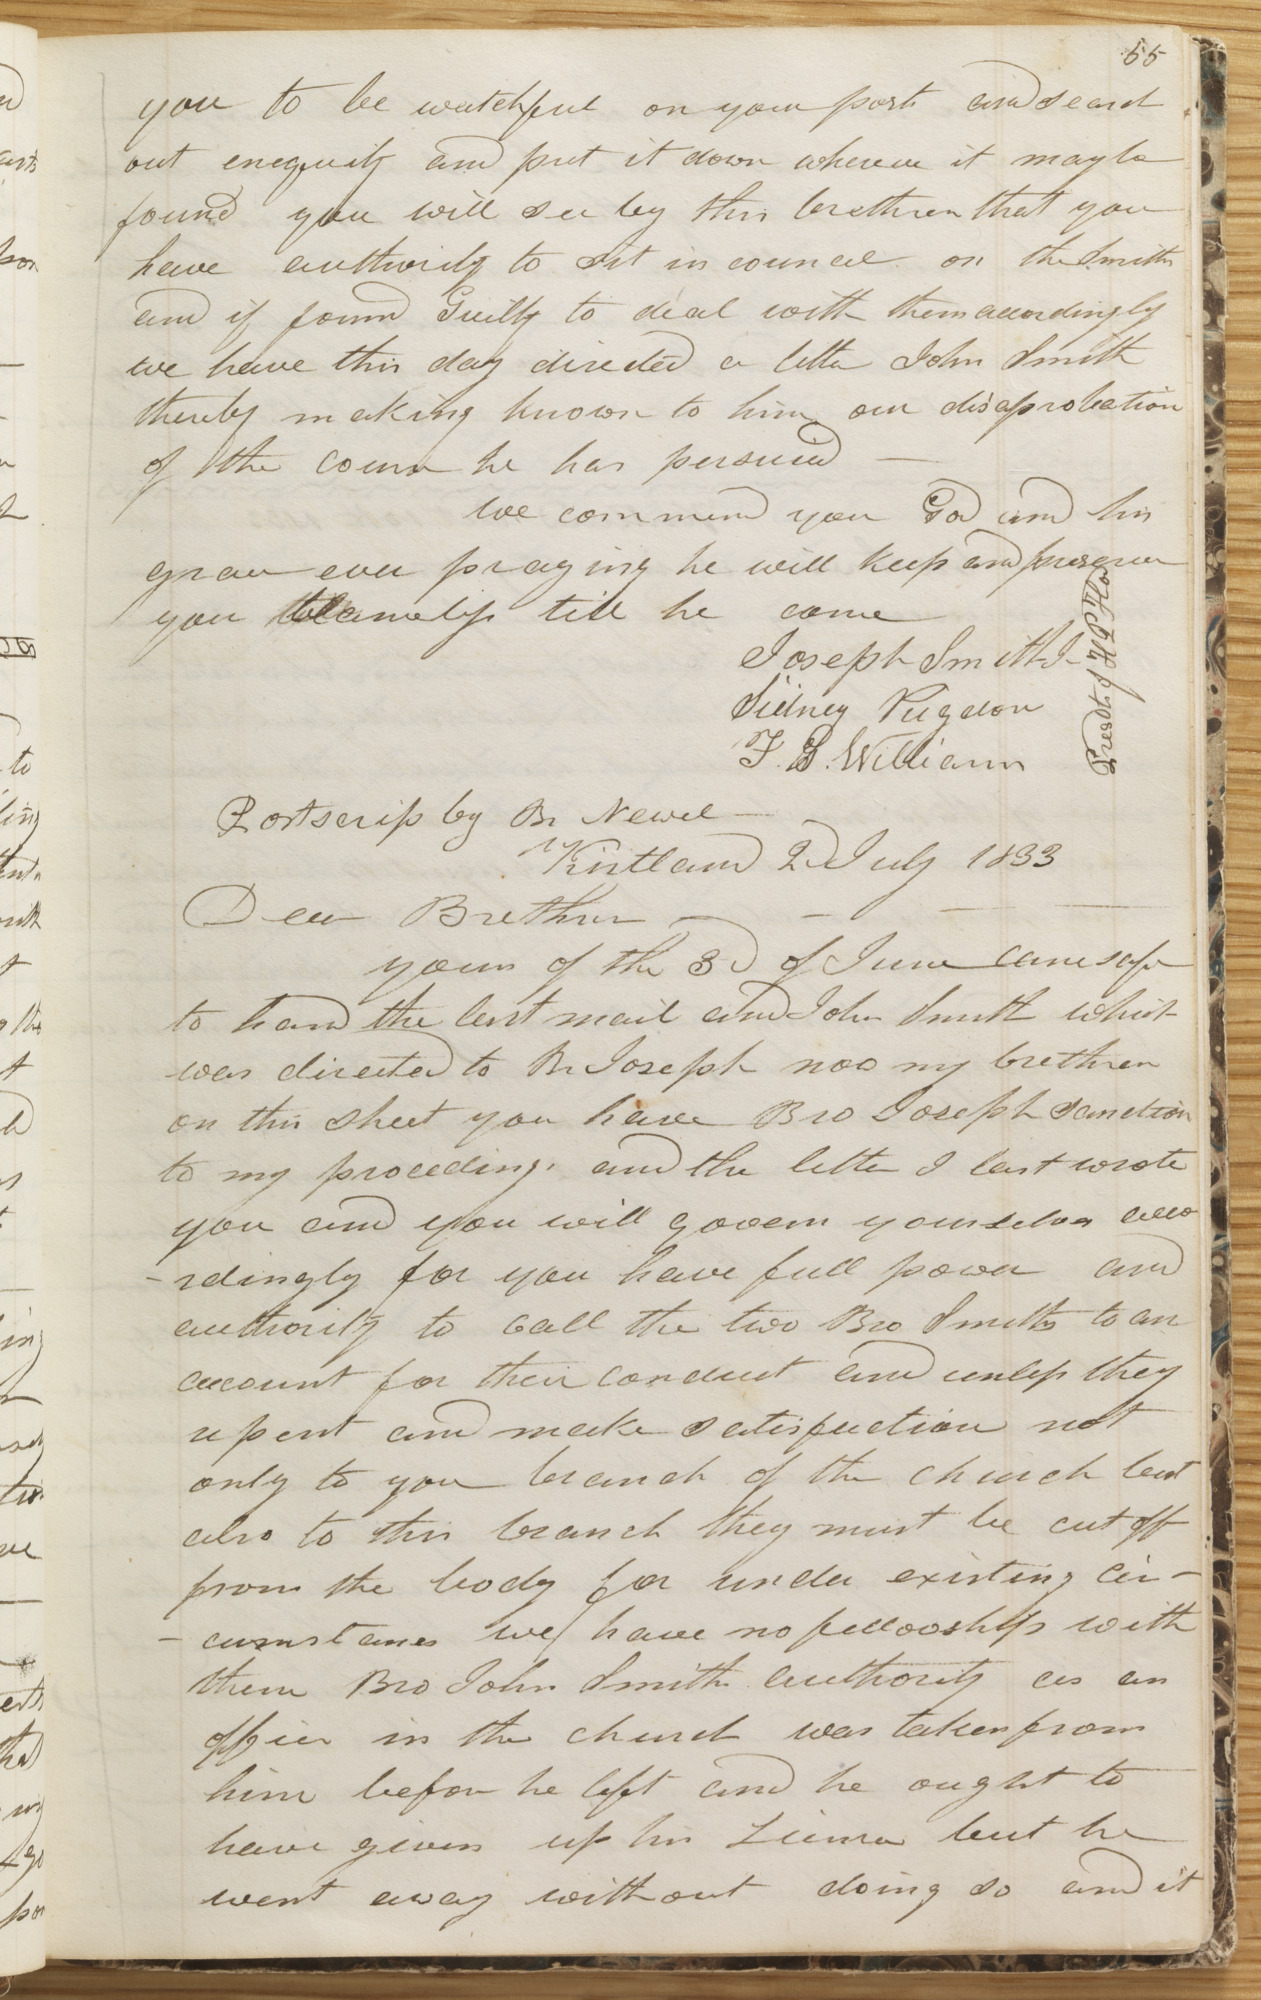 55
you to be watchful on your part and search
out enequity and put it down wherever it may be
found you will see by this brethren that you
have authority to sit in council on the Smiths
and if found Guilty to deal with them accordingly
we have this day directed a letter John Smith
thereby making known to him our disaprobation
of the course he has persued —
we commend you God and his
grace ever praying he will keep and preserve
you blamelss till he come
Joseph Smith Jr
Sidney Rigdon
F. G. Williams
Presdt of the
Postscrip by Br Newel —
Kirtland 2d July 1833
Dear Brethren — — — —
yours of the 3d of June came safe
to hand the last mail and John Smith which
was directed to Br Joseph now my brethren
on this sheet you have Bro Joseph sanction
to my proceedings and the letter I last wrote
you and you will govern yourselves acco
-rdingly for you have full power and
authority to call the two Bro Smiths to an
account for their conduct and unless they
repent and make satisfaction not
only to your branch of the church but
also to this branch they must be cut off
from the body for under existing cir-
-cumstances we have no fellowship with
them Bro John Smith authority as an
officer in the church was taken from
him before he left and he ought to
have given up his License but he
went away without doing so and it